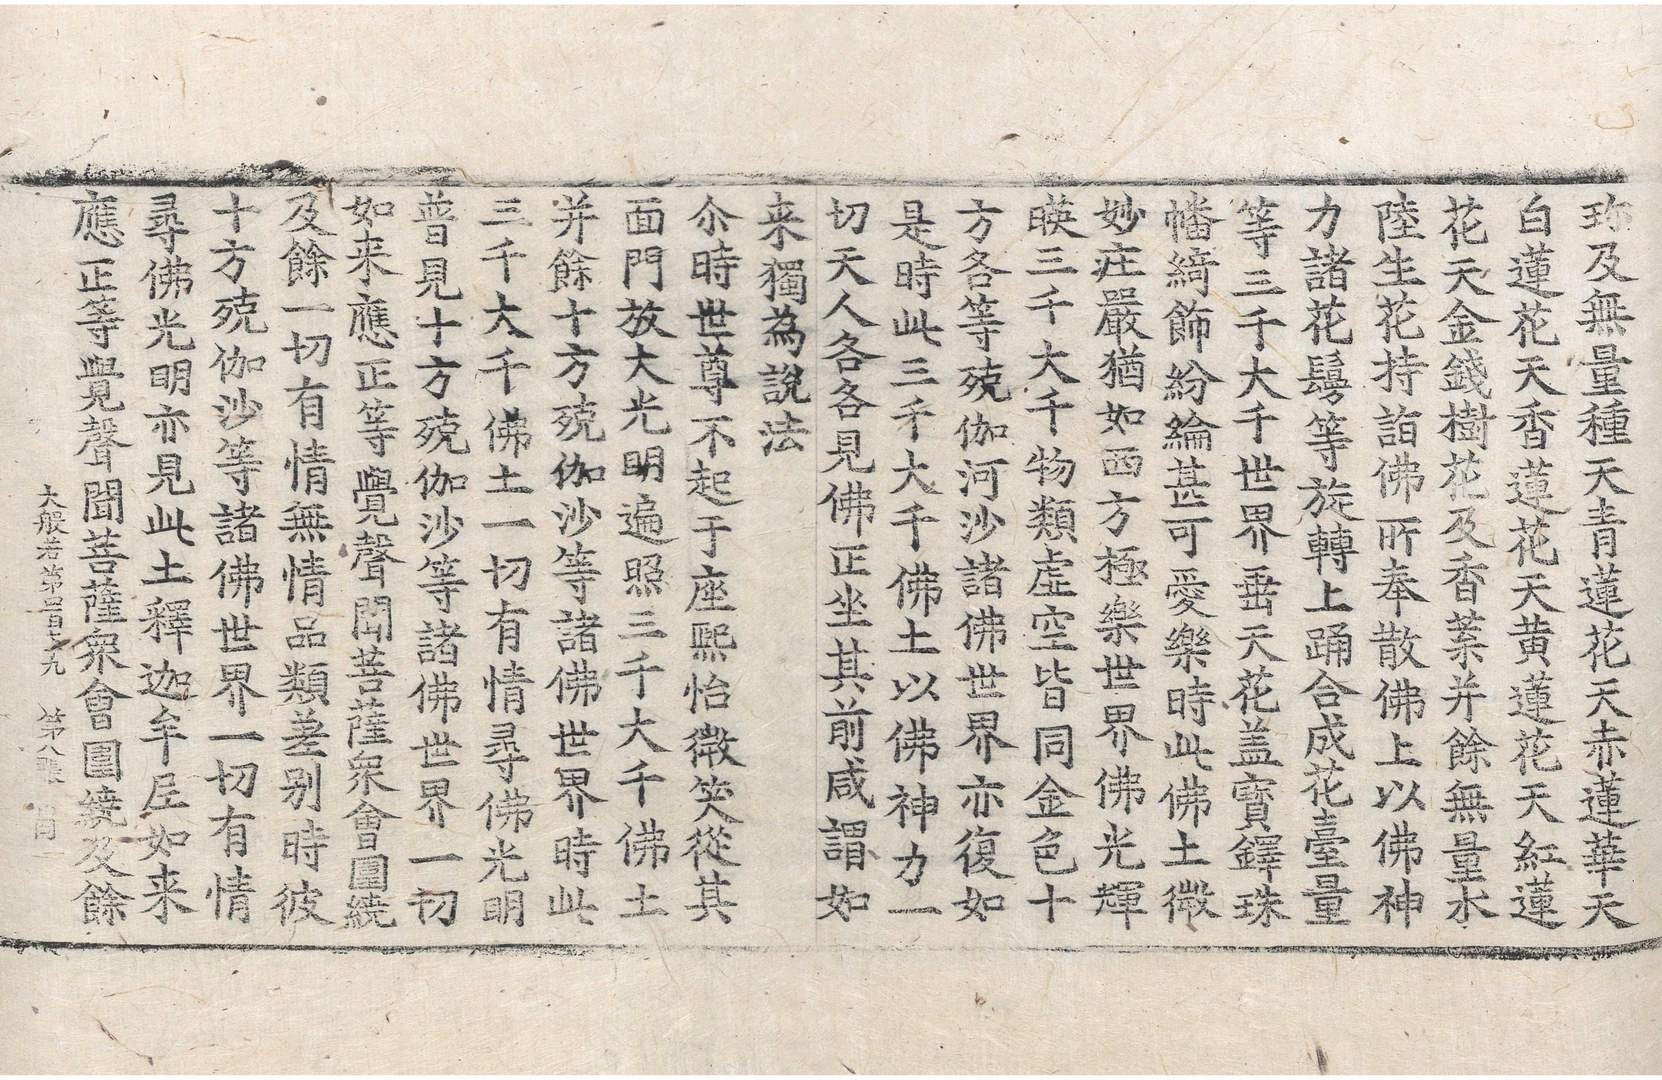 珎及無量種天青蓮花天赤蓮華天
白蓮花天香蓮花天黄蓮花天紅蓮
花天金錢樹花及香葉并餘無量水
陸生花持詣佛所奉散佛上以佛神
力諸花鬘等旋轉上踊合成花臺量
等三千大千世界垂天花盖寶鐸珠
幡綺飾紛綸甚可愛樂時此佛土微
妙莊嚴猶如西方極樂世界佛光輝
暎三千大千物類虛空皆同金色十
方各等殑伽河沙諸佛世界亦復如
是時此三千大千佛土以佛神力一
切天人各各見佛正坐其前咸謂如
来獨為說法
尒時世尊不起于座熙怡微笑從其
面門放大光明遍照三千大千佛土
并餘十方殑伽沙等諸佛世界時此
三千大千佛土一切有情尋佛光明
普見十方殑伽沙等諸佛世界一切
如来應正等覺聲聞菩薩衆會圍繞
及餘一切有情無情品類差别時彼
十方殑伽沙等諸佛世界一切有情
尋佛光明亦見此土釋迦牟尼如来
應正等覺聲聞菩薩衆會圍繞及餘
大般若第四百七九 第八張